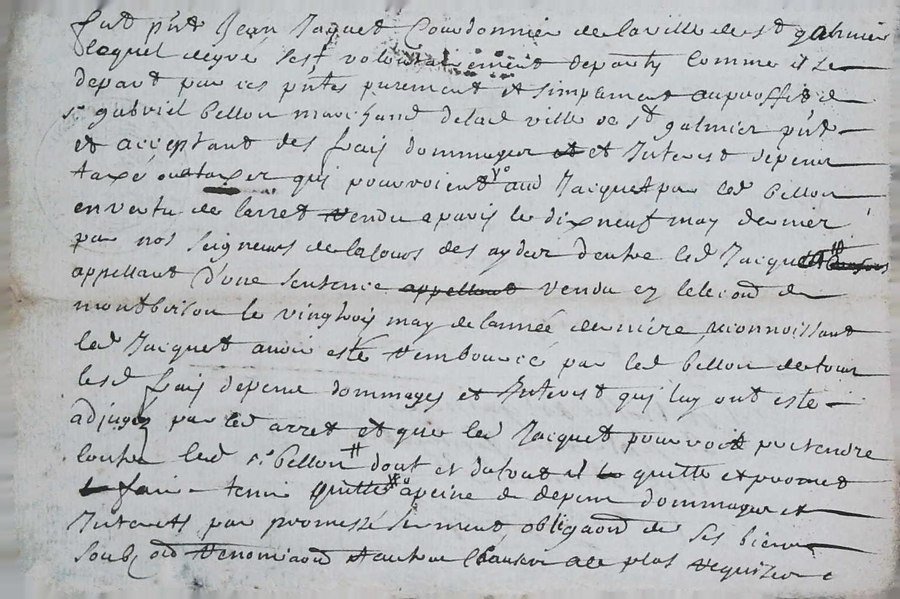 fut pnt Jean Jaquet Courdonnier de la ville de st galmier
lequel de gré s'est volontairement departy comme il se
depart par ces pntes purement et simplement au proffit de
sr gabriel bellon marchand de lad ville de st galmier pnt
et acceptant des frais dommages et et Interest depens
taxé ou a taxer qui pourvoient aud Jacquet par led bellon
en vertu de larret rendu a paris le dix neuf may dernier
par nos seigneurs de la cour des aydes dentre led Jacquet
appellant d'une sentence appellant rendu en lelection de
montbrison le vingtrois may de lannée derniere reconnoissant
led Jacquet avoir esté rembourcé par led bellon de tous
lesd frais depens dommages et Interest qui luy ont esté
adjugés par led arret et que led Jacquet pourroit pretendre
contre led sr bellon dont et du tout il le quitte et promet
faire tenir quitte a peine de depens dommages et
Interets par promesse serment obligaon de ses biens
soubz renonciaon et autres clauses de plus requises